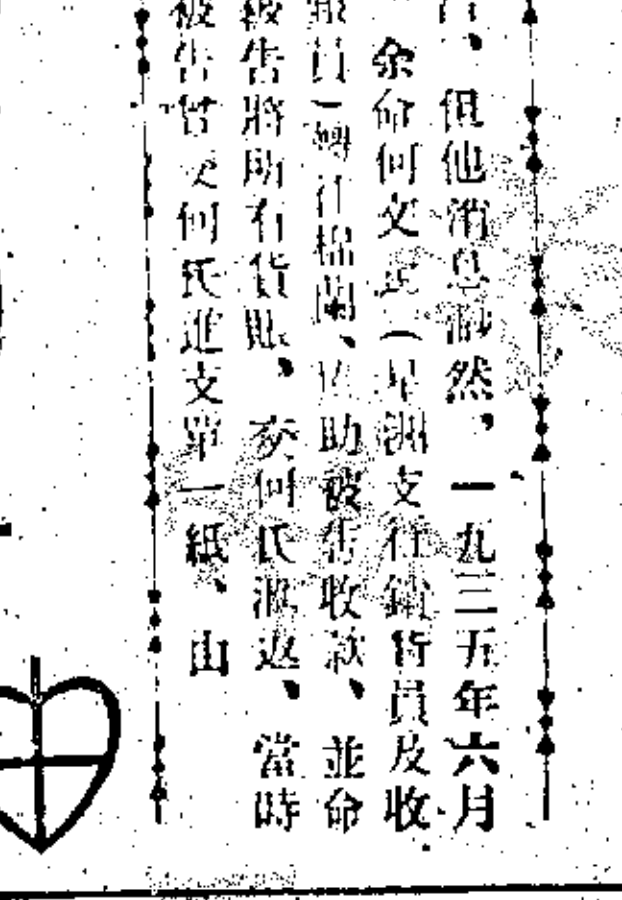 但他消息渺然、一九三五年六月
余命何文 (星洲支行銷貨員及收
員)轉往棉蘭、協助被告收款、並命
被告將所有貨賬、交何氏滙返、當時
被告曾交何氏進支單一紙、由